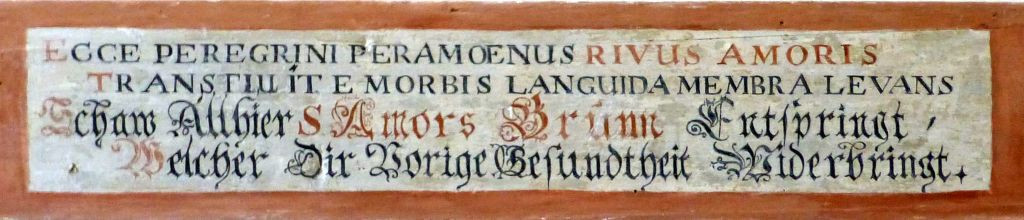 ECCE PEREGRINI PERAMOENUS RIVUS AMORIS
TRANSILIIT E MORBIS LANGUIDA MEMBRA LEVANS
Schaw Allhier S Amors Brunn Entspringt,
Welcher Dir Vorige Gesundtheit Widerbringt.